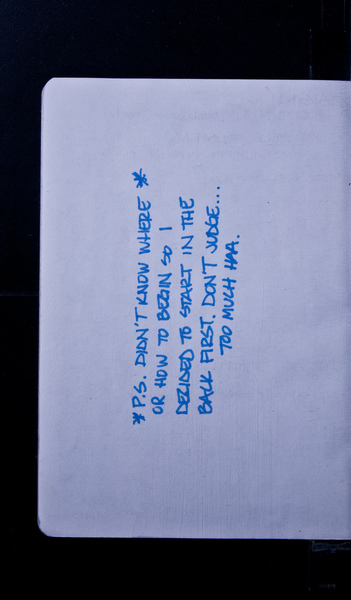 *P.S. DIDN'T KNOW WHERE*
OR HOW TO BEGIN SO I
DECIDED TO START IN THE
BACK FIRST. DON'T JUDGE...
TOO MUCH HAA.